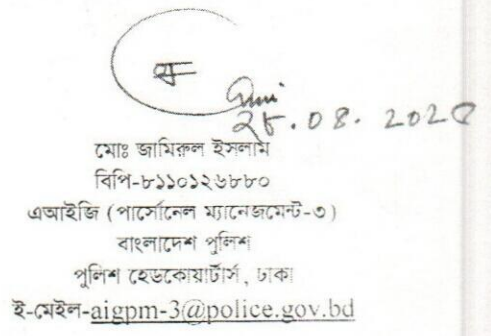 ২৮.০৪.২০২৫
মোঃ জামিরুল ইসলাম
বিপি-৮১১০১২৬৮৮০
এআইজি (পার্সোনেল ম্যানেজমেন্ট-৩)
বাংলাদেশ পুলিশ
পুলিশ হেডকোয়ার্টার্স, ঢাকা
ই-মেইল-aigpm-3@police.gov.bd